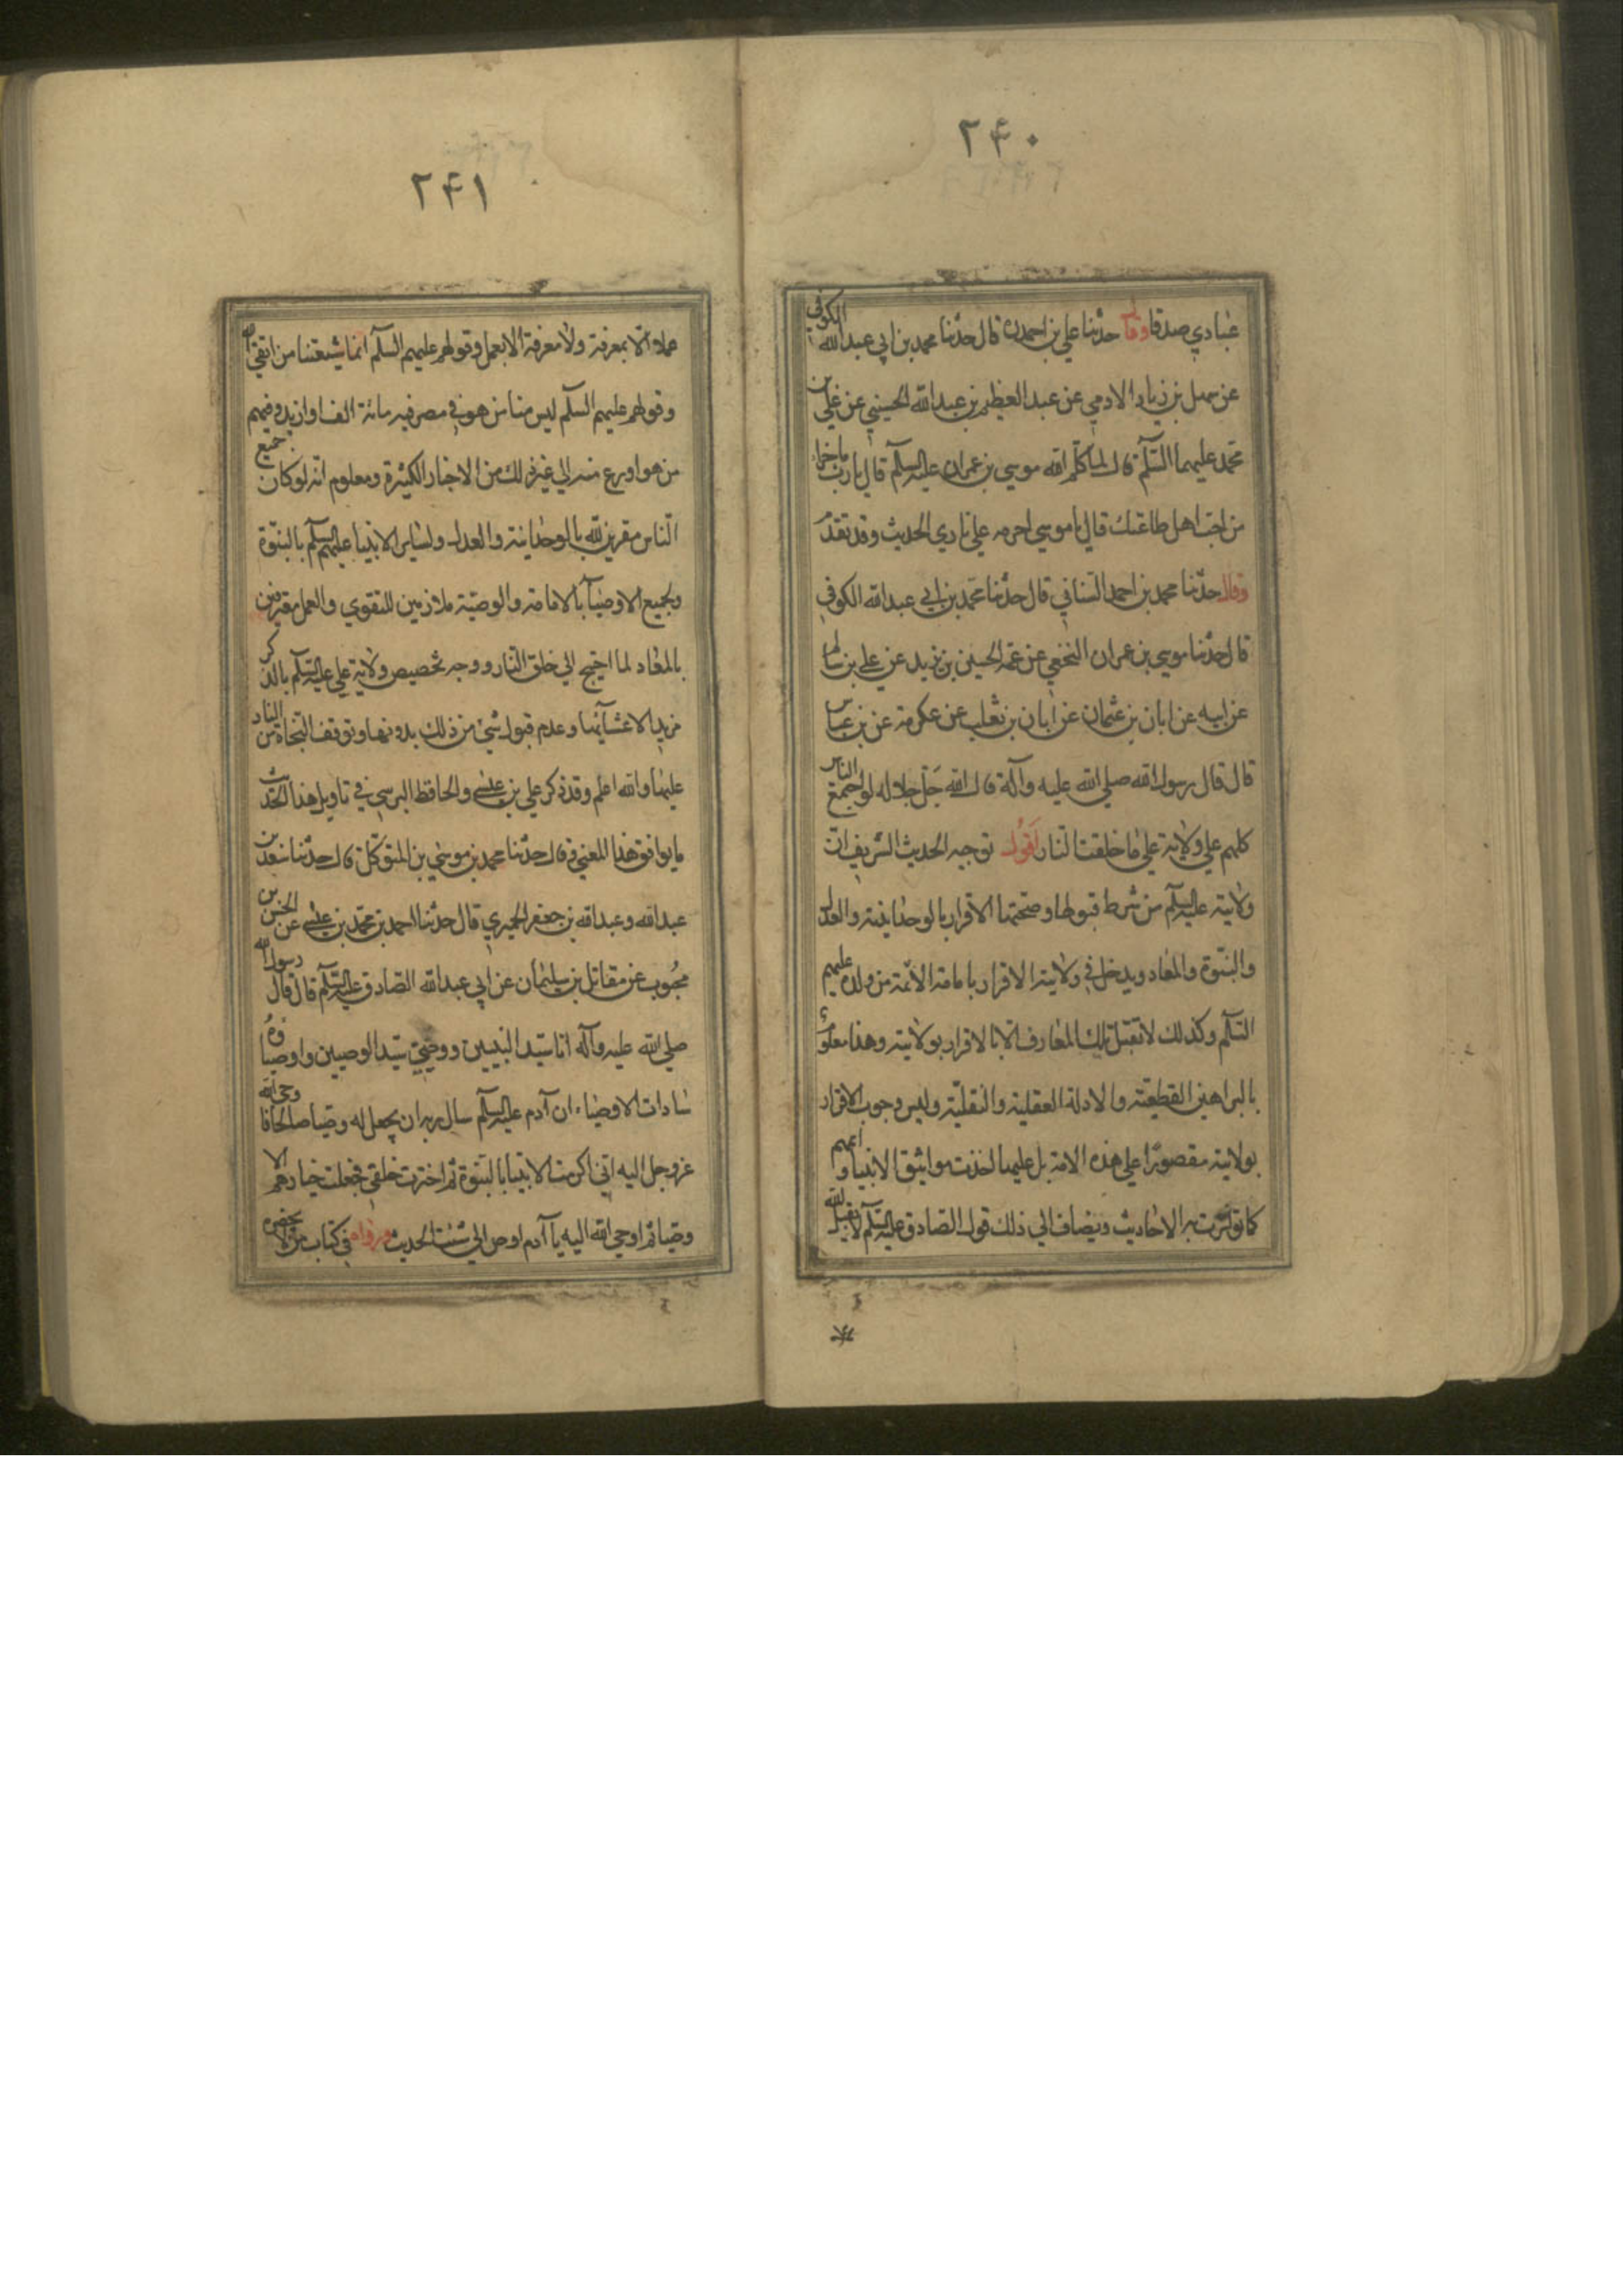 ۲۴۰
عبادي صدقا وقال حدثنا علي بن احمد قال حدثنا محمد بن ابي عبد الله الكوفي
عن سهل بن زياد الادمي عن عبد العظيم بن عبد الله الحسيني عن علي بن
محمد عليهما السلم قال لما كلم الله موسي بن عمران عليه السلم قال يا رب ما جزاء
من احب اهل طاعتك قال يا موسي احرمه علي ناري الحديث وقد تقدم
وقال حدثنا محمد بن احمد السناني قال حدثنا محمد بن ابي عبد الله الكوفي
قال حدثنا موسي بن عمران النخعي عن عمه الحسين بن يزيد عن علي بن سالم
عن ابيه عن ابان بن عثمان عن ابان بن تغلب عن عكرمة عن بن عباس
قال قال رسول الله صلي الله عليه وآله قال الله جل جلاله لو اجتمع الناس
كلهم علي ولاية علي ما خلقت النار اقول توجيه الحديث الشريف ان
ولايته عليه السلم من شرط قبولها وصحتها الاقرار بالوحدانية والعدل
والنبوة والمعاد ويدخل في ولايته الاقرار بامامة الائمة من ولده عليهم
السلم وكذلك لا تقبل تلك المعارف الا بالاقرار بولايته وهذا معلوم
بالبراهين القطعية والادلة العقلية والنقلية وليس وجوب الاقرار
بولايته مقصورا علي هذه الامة بل عليها اخذت مواثيق الانبيا واممهم
كما تواترت به الاحاديث ويضاف الي ذلك قول الصادق عليه السلم لا يقبل الله
۲۴۱
عملا الا بمعرفة ولا معرفة الا بعمل وقولهم عليهم السلم انما شيعتنا من اتقي الله
وقولهم عليهم السلم ليس منا من هو في مصر فيه مائة الف او ازيد وفيهم
من هو اورع منه الي غير ذلك من الاخبار الكثيرة ومعلوم انه لو كان جميع
الناس مقرين لله بالوحدانية والعدل ولساير الانبيا عليهم السلم بالنبوة
ولجميع الاوصيآ بالامامة والوصية ملازمين للتقوي والعمل مقرين
بالمعاد لما احتيج الي خلق النار ووجه تخصيص ولاية علي عليه السلم بالذكر
مزيد الاعتنآ بها وعدم قبول شئ من ذلك بدونها وتوقف النجاة من النار
عليها والله اعلم وقد ذكر علي بن عيسي والحافظ البرسي في تاويل هذا الحديث
ما يوافق هذا المعني وقال حدثنا محمد بن موسي بن المتوكل قال حدثنا سعد بن
عبد الله وعبد الله بن جعفر الحميري قال حدثنا احمد بن محمد بن عيسي عن الحسن بن
محبوب عن مقاتل بن سليمان عن ابي عبد الله الصادق عليه السلم قال قال رسول الله
صلي الله عليه وآله انا سيد النبيين ووصيي سيد الوصيين واوصياؤه
سادات الاوصياء ان آدم عليه السلم سال ربه ان يجعل له وصيا صالحا فاوحي الله
عز وجل اليه اني اكرمت الانبيا بالنبوة ثم اخترت خلقي فجعلت خيارهم الا
وصيا ثم اوحي الله اليه يا آدم اوص الي شيث الحديث ورواه في كتاب من لا يحضره